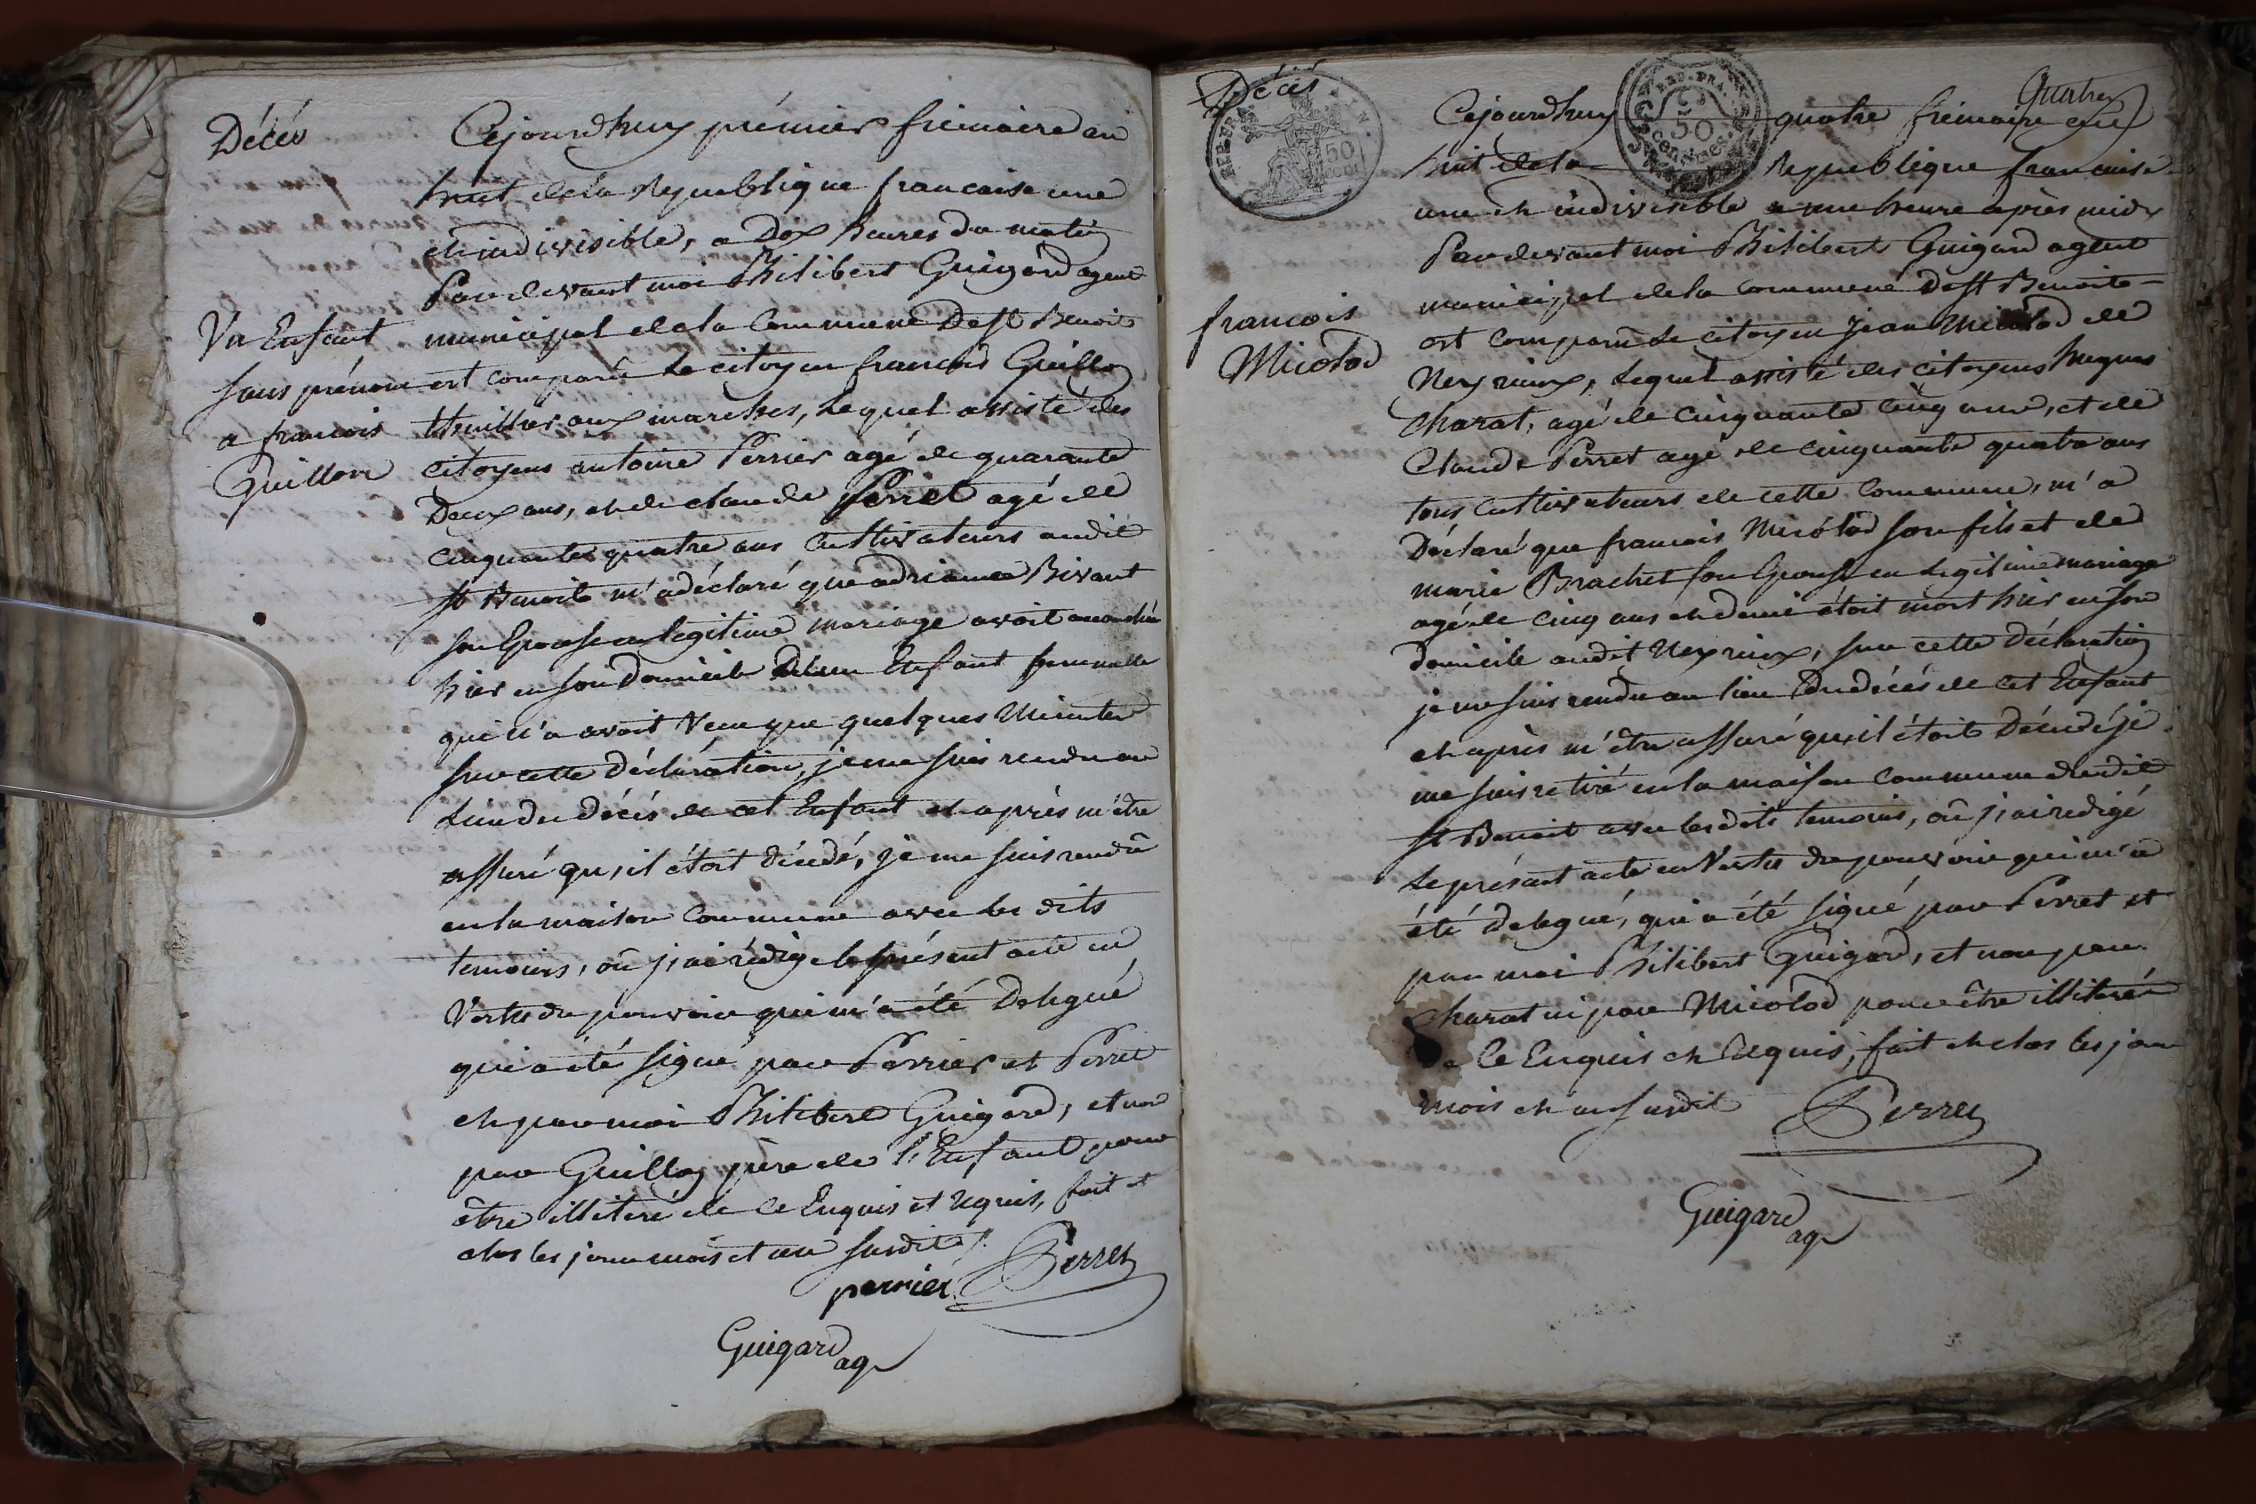 Décés
Cejourdhuy prémier frimaire an
huit de la République francaise une
et indivisible, a Dix heures du matin
Pardevant moi Philibert Guigard agent
Un Enfant
sans prénom
a francois
Guillon
municipal de la Commune De St Benoit
est comparu Le citoyen francois Guillon
thuillier aux marches, Lequel assisté des
citoyens antoine Perrier agé de quarante
Deux ans, et de claude Perret agé de
cinquante quatre ans cultivateurs audit
St Benoit m'a déclaré que adrianne Bivant
son Epouse en legitime mariage avoit accouché
hier en son Domicile d'un Enfant femmelle
qui n'a avoit vecu que quelques Minutes
sur cette déclaration, je me suis rendu au
Lieu du décés de cet Enfant et après m'être
assuré qu'il étoit décédé, je me suis rendû
en la maison Commune avec les dits
temoins, où j'ai rédigé le présent acte en
Vertu du pouvoir qui m'a été Delegué
qui a été signé par Perrier et Perret
et par moi Philibert Guigard, et non
par Guillon père de l'Enfant pour
être illiteré de ce Enquis et requis, fait et
clos les jour mois et an susdits
perrier Perret
Guigard ag
Décés
Quatre
francois
Micolod
Cejourdhuy quatre frimaire an
huit de la République francaise
une et indivisible a une heure après midy
Pardevant moi Philibert Guigard agent
municipal de la Commune De St Benoit
est comparu Le citoyen Jean Micolod de
Neyrieux, Lequel assisté des citoyens hugues
Charat, agé de cinquante cinq ans, et de
Claude Perret agé de cinquante quatre ans
tous cultivateurs de cette Commune, m'a
Déclaré que francois Micolod son fils et de
marie Brachet son Epouse en Legitime mariage
agé de cinq ans et demi étoit mort hier en son
domicile audit Neyrieux, sur cette déclaration
je me suis rendu au lieu du décés de cet Enfant
et après m'être assuré qu'il étoit Décédé je
me suis retiré en la maison Commune dudit
St Benoit avec les dits temoins, où j'ai redigé
Le présent acte en Vertu du pouvoir qui m'a
été delegué, qui a été signé par Perret et
par moi Philibert Guigard, et non par
Charat ni par Micolod pour être illiterés
De Ce Enquis et Requis, fait et clos les jour
mois et an susdit Perret
Guigard
ag
REP. FRA.
50
CENT
REP. FRA.
50
CENTIMES